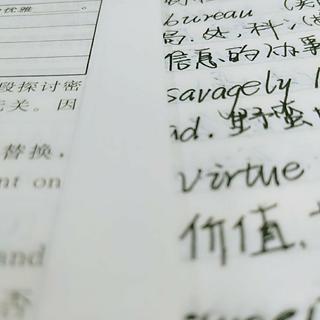 优雅。
段探讨密
无关。因
替换，
nt on
and
否
bureau
局.处,科
信息的办事
savagely
ad. 野蛮
virtue
价值.